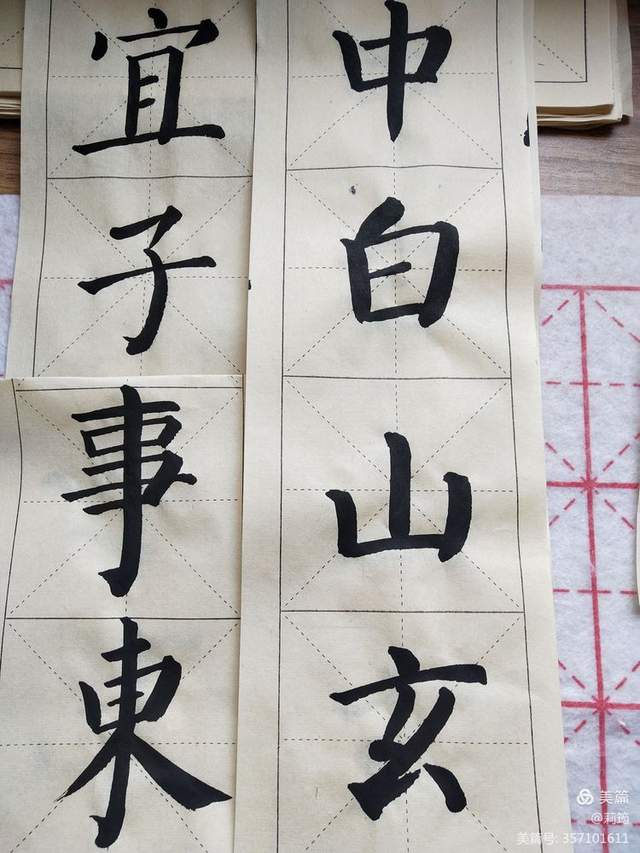 中白山玄
宜子
事東
美篇
@莉筠
美篇号: 357101611